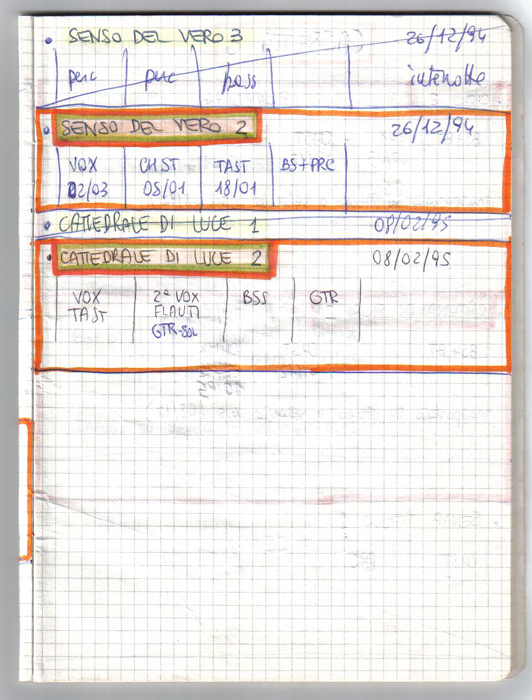 • SENSO DEL VERO 3 26/12/94
perc perc bass interrotto
• SENSO DEL VERO 2 26/12/94
VOX CHST TAST BS+PRC
02/03 05/01 18/01
• CATTEDRALE DI LUCE 1 08/02/95
• CATTEDRALE DI LUCE 2 08/02/95
VOX 2ª VOX BSS GTR
TAST FLAUTI
GTR-SOL